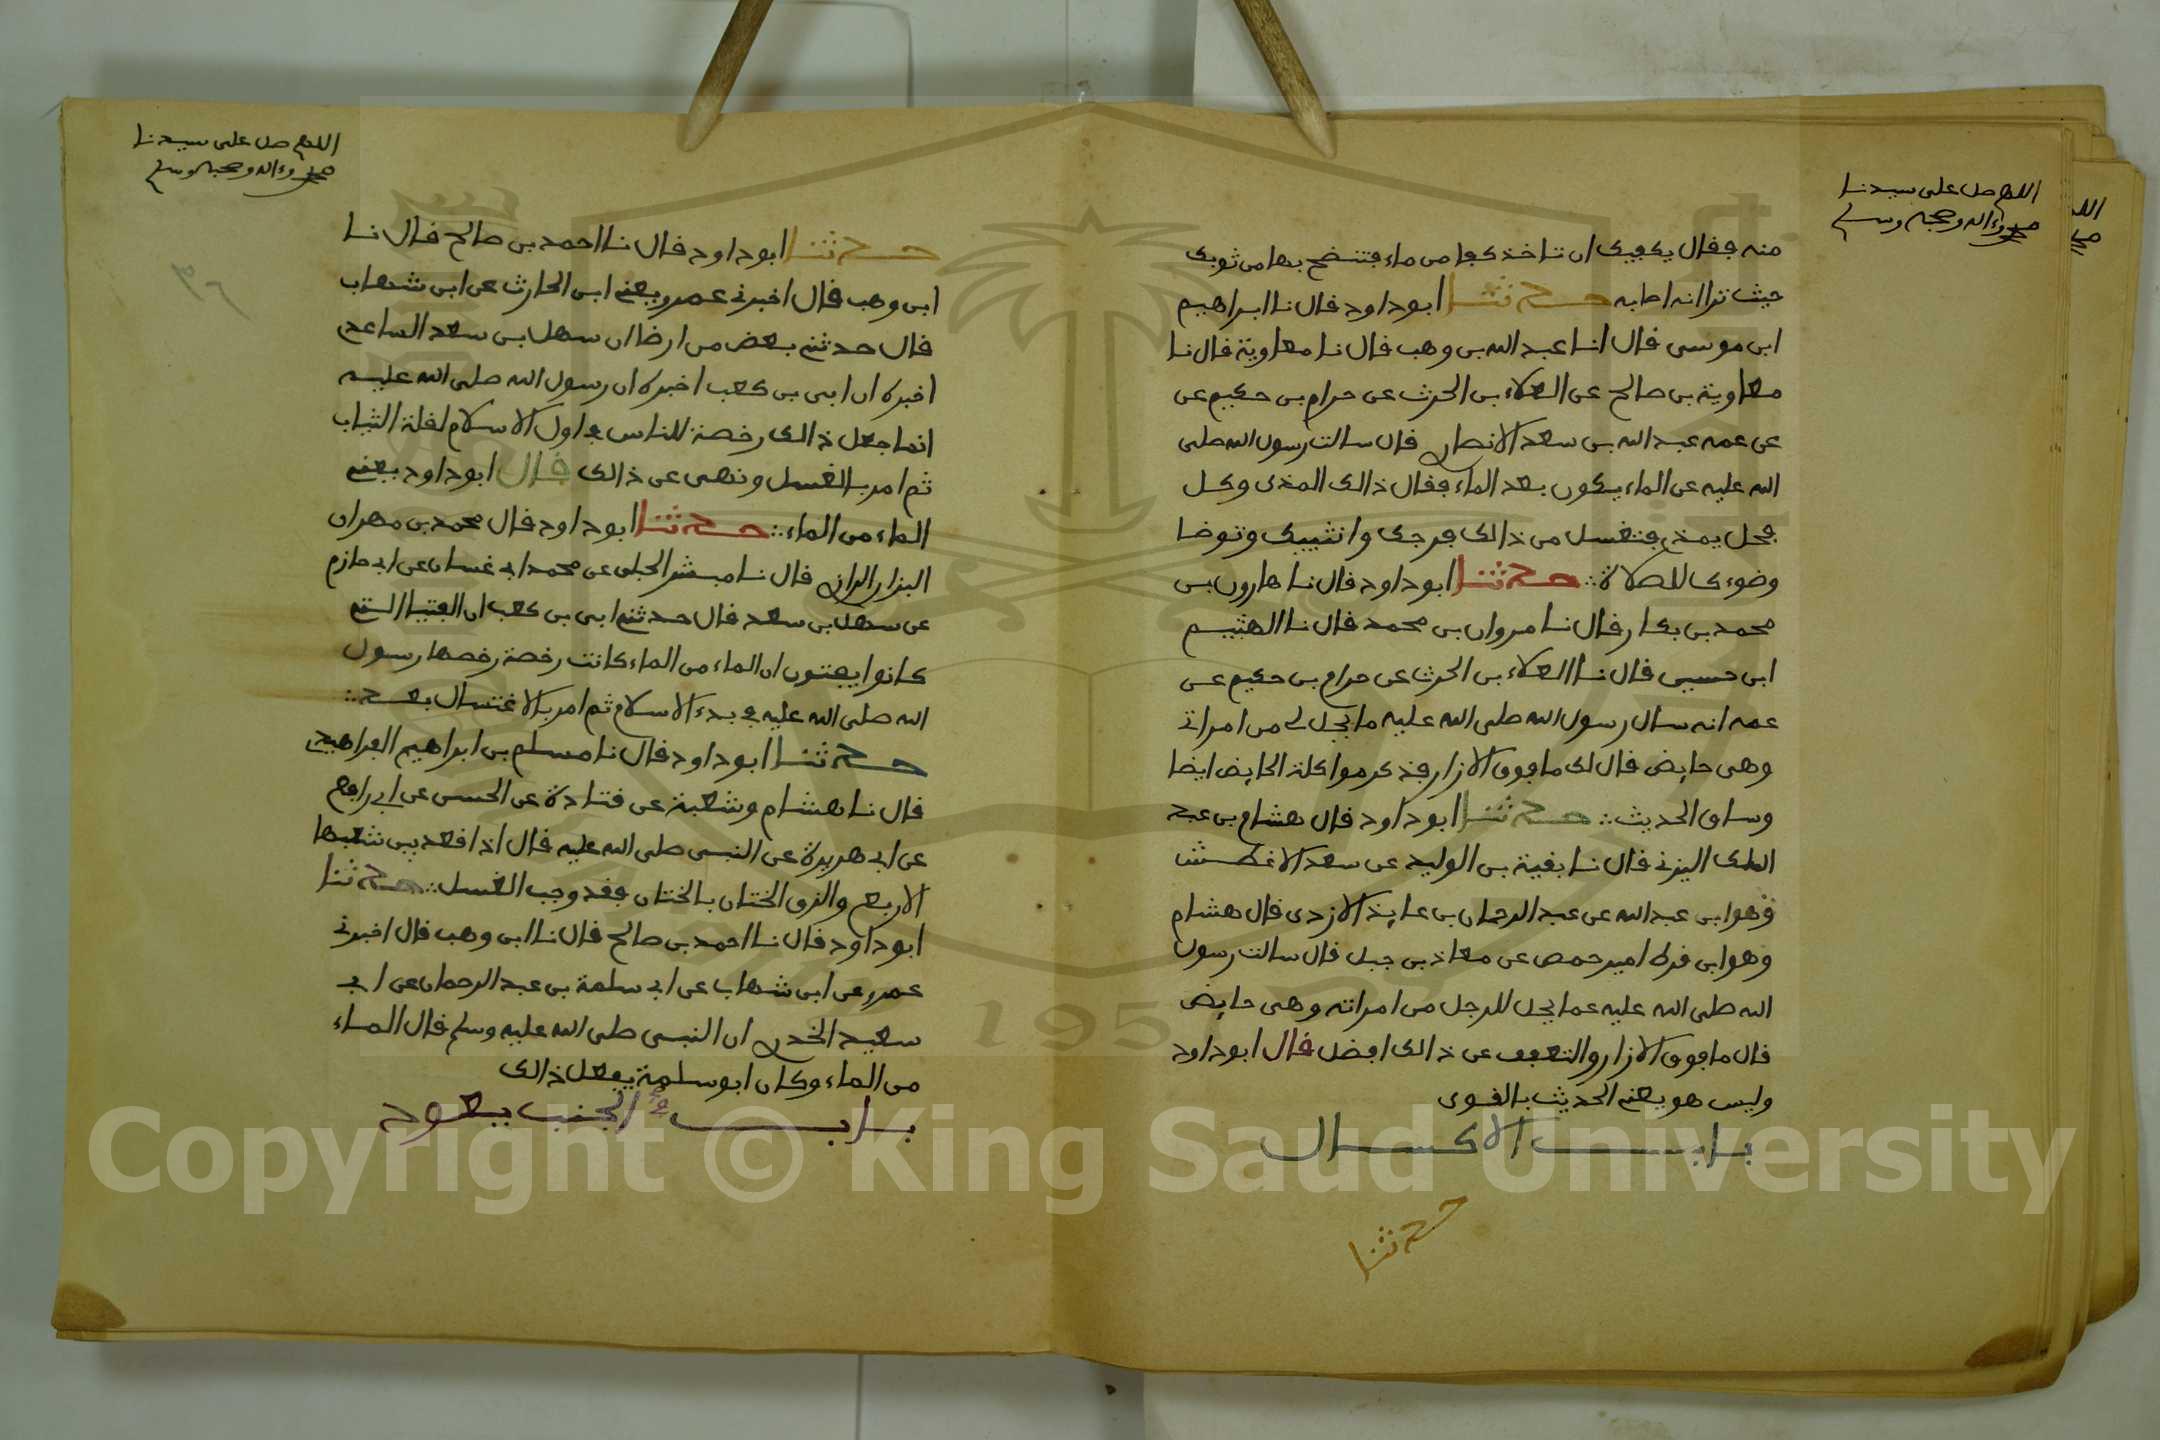 اللهم صل على سيدنا
محمد وءاله وصحبه وسلم
منه فقال يكفيك ان تاخذ كفا من ماء فتنضح بها من ثوبك
حيث ترا انه اصابه حدثنا ابوداود قال نا ابراهيم
ابن موسى قال انا عبد الله بن وهب قال نا معاوية قال نا
معاوية بن صالح عن العلاء بن الحرث عن حرام بن حكيم عن
عن عمه عبد الله بن سعد الانصاري قال سالت رسول الله صلى
الله عليه عن الماء يكون بعد الماء فقال ذالك المذى وكل
فحل يمذي فتغسل من ذالك فرجك وانثييك وتوضا
وضوءك للصلاة حدثنا ابوداود قال نا هارون بن
محمد بن بكار قال نا مروان بن محمد قال نا الهثيم
ابن حسين قال نا العلاء بن الحرث عن حرام بن حكيم عن
عمه انه سال رسول الله صلى الله عليه ما يحل لي من امراتي
وهي حايض قال لك ما فوق الازار فذكر مواكلة الحايض ايضا
وساق الحديث حدثنا ابوداود قال هشام بن عبد
الملك اليزني قال نا بقية بن الوليد عن سعد الاغطش
وهو ابن عبد الله عن عبد الرحمان بن عايذ الازدى قال هشام
وهو ابن قرط امير حمص عن معاذ بن جبل قال سالت رسول
الله صلى الله عليه عما يحل للرجل من امراته وهي حايض
قال ما فوق الازار والتعفف عن ذالك افضل قال ابوداود
وليس هو يعني الحديث بالقوى
باب الاكسال
حدثنا
اللهم صل على سيدنا
محمد وءاله وصحبه وسلم
حدثنا ابوداود قال نا احمد بن صالح قال نا
ابن وهب قال اخبرني عمرو يعني ابن الحارث عن ابن شهاب
قال حدثني بعض من ارضا ان سهل بن سعد الساعدي
اخبره ان ابي بن كعب اخبره ان رسول الله صلى الله عليه
انما جعل ذالك رخصة للناس في اول الاسلام لقلة الثياب
ثم امر بالغسل ونهى عن ذالك قال ابوداود يعني
الماء من الماء حدثنا ابوداود قال محمد بن مهران
البزار الرازي قال نا مبشر الحلبي عن محمد ابي غسان عن ابي حازم
عن سهل بن سعد قال حدثني ابي بن كعب ان الفتيا التي
كانوا يفتون ان الماء من الماء كانت رخصة رخصها رسول
الله صلى الله عليه في بدء الاسلام ثم امر بالاغتسال بعد
حدثنا ابوداود قال نا مسلم بن ابراهيم الفراهيدي
قال نا هشام وشعبة عن قتادة عن الحسن عن ابي رافع
عن ابي هريرة عن النبي صلى الله عليه قال اذا قعد بين شعبها
الاربع والزق الختان بالختان فقد وجب الغسل حدثنا
ابوداود قال نا احمد بن صالح قال نا ابن وهب قال اخبرني
عمرو عن ابن شهاب عن ابي سلمة بن عبد الرحمان عن ابي
سعيد الخدري ان النبي صلى الله عليه وسلم قال الماء
من الماء وكان ابو سلمة يفعل ذالك
باب في الجنب يعود
Copyright © King Saud University
1957